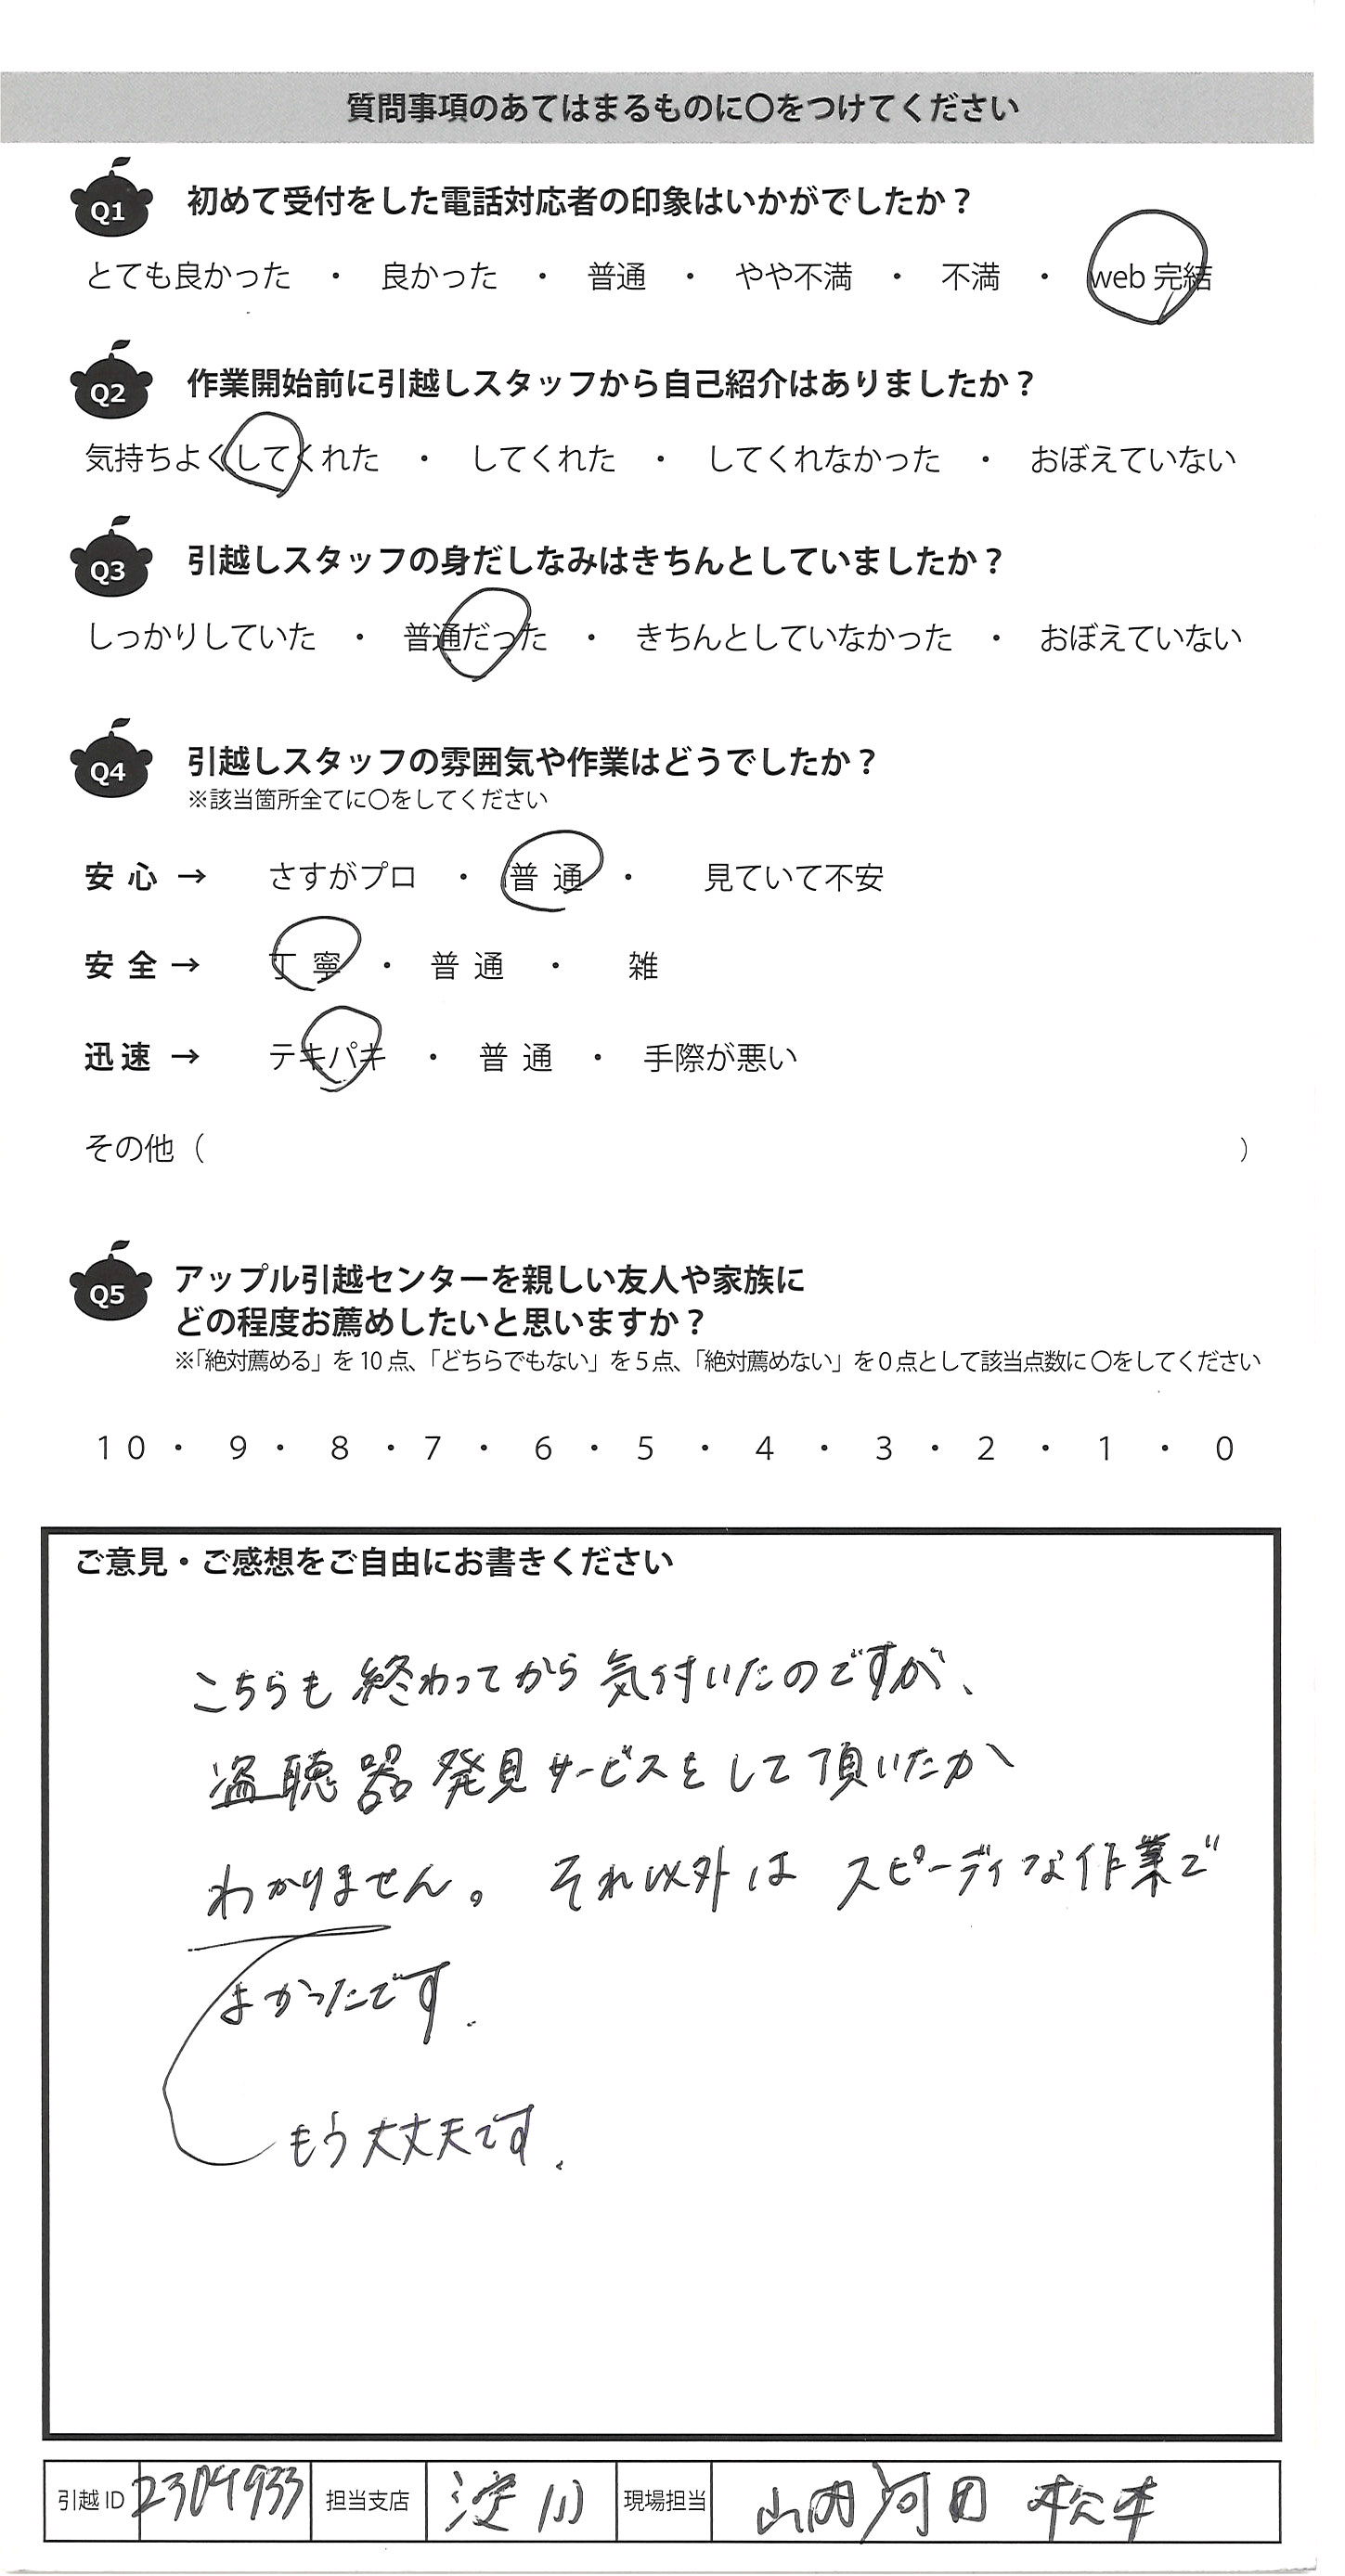 質問事項のあてはまるものに〇をつけてください
Q1 初めて受付をした電話対応者の印象はいかがでしたか？
とても良かった ・ 良かった ・ 普通 ・ やや不満 ・ 不満 ・ web 完結
Q2 作業開始前に引越しスタッフから自己紹介はありましたか？
気持ちよくしてくれた ・ してくれた ・ してくれなかった ・ おぼえていない
Q3 引越しスタッフの身だしなみはきちんとしていましたか？
しっかりしていた ・ 普通だった ・ きちんとしていなかった ・ おぼえていない
Q4 引越しスタッフの雰囲気や作業はどうでしたか？
※該当箇所全てに〇をしてください
安 心 → さすがプロ ・ 普 通 ・ 見ていて不安
安 全 → 丁 寧 ・ 普 通 ・ 雑
迅 速 → テキパキ ・ 普 通 ・ 手際が悪い
その他（ ）
Q5 アップル引越センターを親しい友人や家族に
どの程度お薦めしたいと思いますか？
※「絶対薦める」を 10 点、「どちらでもない」を 5 点、「絶対薦めない」を 0 点として該当点数に 〇をしてください
10 ・ 9 ・ 8 ・ 7 ・ 6 ・ 5 ・ 4 ・ 3 ・ 2 ・ 1 ・ 0
ご意見・ご感想をご自由にお書きください
こちらも 終わってから 気付いたのですが、
盗聴器 発見サービスをして頂いたか
わかりません。 それ以外は スピーディな作業で
よかったです.
もう大丈夫です.
引越 ID 2304933 担当支店 淀川 現場担当 山内 河田 松本